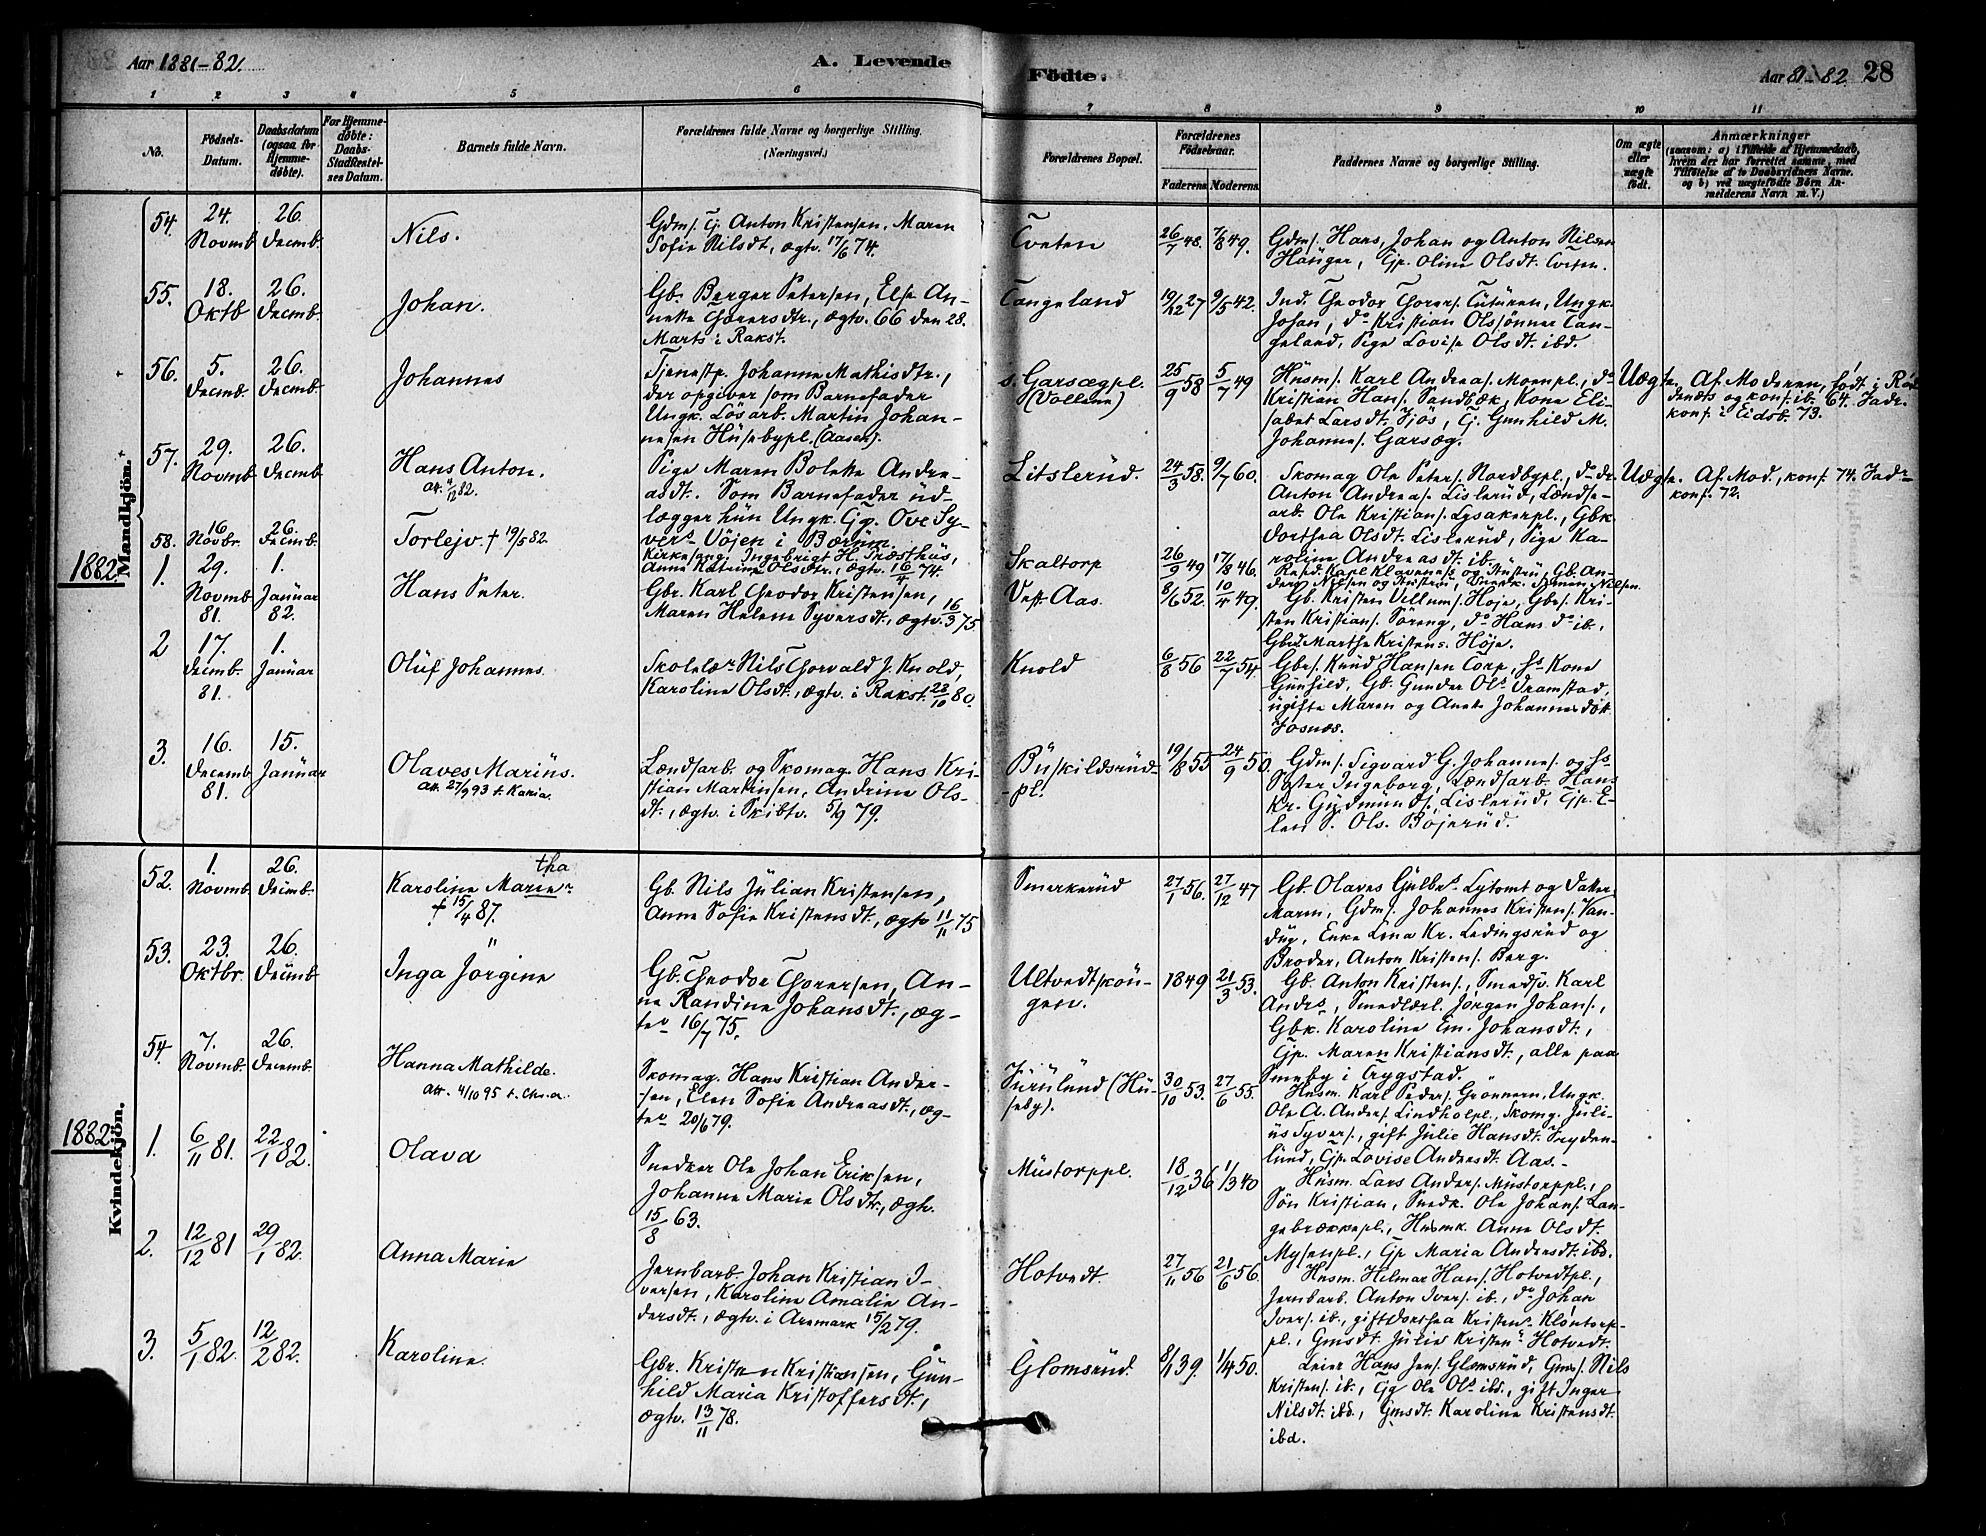 Aar 1881-82.
A. Levende
Födte.
Aar 81-82
28
1 2 3 4 5 6 7 8 9 10 11
No.
Födsels-Datum.
Daabsdatum (ogsaa for Hjemme-døbte).
For Hjemme-døbte: Daabs-Stadfæstel-ses Datum.
Barnets fulde Navn.
Forældrenes fulde Navne og borgerlige Stilling.
(Næringsvei.)
Forældrenes Bopæl.
Forældrenes Fødselsaar.
Faderens. Moderens.
Faddernes Navne og borgerlige Stilling.
Om ægte eller uægte født.
Anmærkninger
(saasom: a) i Tilfælde af Hjemmedaab, hvem der har forrettet samme, med Tilføielse af to Daabsvidners Navne. og b) ved uægtefødte Børn An-melderens Navn m. V.)
Mandkjön.
54. 24. Novmb. 26. Decmb. Nils.
Gdms. Tj. Anton Kristensen, Maren
Sofie Nilsdt., ægtv. 17/6 74.
Tveten 26/7 48. 7/8 49.
Gdms. Hans, Johan og Anton Nilsen
Haugen, Gjp. Oline Olsdt. Tveten.
55. 18. Oktb. 26. Decmb. Johan.
Gb. Berger Petersen, Else An-
nette Thorersdtr., ægtv. 66 den 28.
Marts i Rakst.
Tangeland 19/12 27 9/5 42.
Ind. Theodor Thorers. Tuturen, Ungk.
Johan, do Kristian Olssønner Tan-
geland, Pige Lovise Olsdt. ibd.
56. 5. Decmb. 26. Decmb. Johannes
Tjenestp. Johanne Mathisdtr.,
der opgiver som Barnefader
Ungk. Lösarb. Martin Johan-
nesen Husebypl. (Aasen).
s. Garsægpl. (Vollene) 25/9 58 5/7 49
Husm. Karl Andreas. Moenpl., do
Kristian Hans. Sandbæk, Kone Eli-
sabet Larsdt. Sjös, Tj. Gunhild M.
Johannes. Garsæg.
Uægte. Af Moderen, født i Röd-
denæs og konf. ib. 64. Fadr.
konf. i Eidsb. 73.
57. 29. Novmb. 26. Decmb. Hans Anton.
Att. 4/12 82.
Pige Maren Bolette Andre-
asdt. Som Barnefader ud-
lægger hun Ungk. Gp. Ove Sy-
vers Vöjen i Bærum.
Litslerud. 24/3 58. 9/7 60.
Skomag. Ole Peters. Nordbypl., do dr.
Anton Andreas. Lislerud, Landse-
arb. Ole Kristians. Lysakerpl., Gbk.
Dorthea Olsdt. Lislerud, Pige Ka-
roline Andreasdt. ib.
Uægte. Af Mod., konf. 74. Fadr
konf. 72.
58. 16. Novbr. 26. Decmb. Torlejv. † 19/5 82.
Kirkesang. Ingebrigt H. Præsthus,
Anne Katrine Olsdtr., ægtv. 16/4 74.
Skaltorp 26/9 49 17/8 46.
1882
1. 29. Novmb. 81. 1. Januar 82. Hans Peter.
Gbr. Karl Theodor Kristensen,
Maren Helene Syversdt., ægtv. 16/3 75.
Vest. Aas. 8/6 52. 10/4 49.
Gb. Kristen Villums. Höje, Gbs. Kri-
sten Kristians. Söreng, do Hans do ib.,
Gbrd. Marthe Kristens. Höje.
2 17. Decmb. 81. 1. Januar Oluf Johannes.
Skolelær Nils Thorvald J. Knold,
Karoline Olsdt., ægtv. i Rakst. 28/10 80.
Knold 6/8 56 22/7 54.
Gbrs. Knud Hansen Torp, hs Kone
Gunhild, Gb. Gunder Ols. Dramstad,
ugifte Maren og Anette Johannesdöt.
Fosnæs.
3. 16. Decemb. 81. 15. Januar Olaves Marius.
Att. 27/9 93 t. Kania.
Landsarb. og Skomag. Hans Kri-
stian Martinsen, Andrine Ols-
dt., ægtv. i Skibtv. 5/9 79.
Buskildsrud-
-pl. 19/8 55 24/9 50.
Gdms. Sigvard G. Johannes. og hs
Søster Ingeborg, Landsarb. Hans
Kr. Gudmunds. Lislerud, Gjp. E-
len S. Ols. Böjerud.
Kvindekjön.
52. 1. Novmb. 26. Decmb. Karoline Marie tha
† 15/4 87.
Gb. Nils Julian Kristensen,
Anne Sofie Kristensdt., ægtv 11/11 75
Smerkerud 27/1 56. 27/12 47
Gb. Olaves Gulbrs. Lytomt og Datter
Maren, Gdms. Johannes Kristens. Van-
dug, Enke Lena Kr. Ledingsrud og
Broder, Anton Kristens. Berg.
53. 23. Oktbr. 26. Decmb. Inga Jörgine
Gb. Theodor Thorersen, An-
ne Randine Johansdt., æg-
tev 16/7 75.
Ultvedtskou-
gen. 1849 21/3 53.
Gb. Anton Kristens., Smedsv. Karl
Andrs., Smedlærl. Jörgen Johans.,
Gbk. Karoline Em. Johansdt.,
Gjp. Maren Kristiansdt., alle paa
Smeby i Trygstad.
54. 7. Novmb. 26. Decemb. Hanna Mathilde.
Att. 4/10 95 t. Chr.a.
Skomag. Hans Kristian Ander-
sen, Elen Sofie Andreasdt., æg-
tev 20/6 79.
Furulund (Hu-
seby). 30/10 53. 27/6 55.
Husm. Karl Peders. Grönnern, Ungk.
Ole A. Anders. Lindholpl., Skomg. Juli-
us Syvers., gift Julie Hansdt. Fryden-
lund, Gjp. Lovise Andersdt. Aas.
1882.
1. 6/11 81. 22/1 82. Olava
Snedker Ole Johan Eriksen,
Johanne Marie Olsdtr., ægtv.
15/8 63.
Mustorppl. 18/12 36 1/3 40
Husm. Lars Anders. Mustorppl.,
Søn Kristian, Snedk. Ole Johans. Lan-
gebrækkepl., Husmk. Anne Olsdt.
Mysenpl., Gjp Maria Andersdt. ibd.
2. 12/12 81 29/1 82. Anna Marie
Jernbarb. Johan Kristian I-
versen, Karoline Amalie An-
dersdt., ægtv. i Aremark 15/2 79.
Hotvedt. 27/11 56 21/6 56.
Husm. Hilmar Hans. Hotvedtpl.,
Jernbarb. Anton Ivers. ib., do Johan
Ivers. ib., gift Dorthea Kristens. Klöntorp-
pl., Gmsdt. Julie Kristens. Hotvedt.
3. 5/1 82. 12/2 82. Karoline.
Gbr. Kristen Kristiansen, Gun-
hild Maria Kristoffersdt.,
ægtv. 13/11 78.
Glomsrud. 8/1 39. 1/4 50.
Leier Hans Jens. Glomsrud, Gms. Nils
Kristens. ib., Gg Ole Ols ibd., gift Inger
Nilsdt. ibd., Gmsdt. Karoline Kristensdt.
ibd.